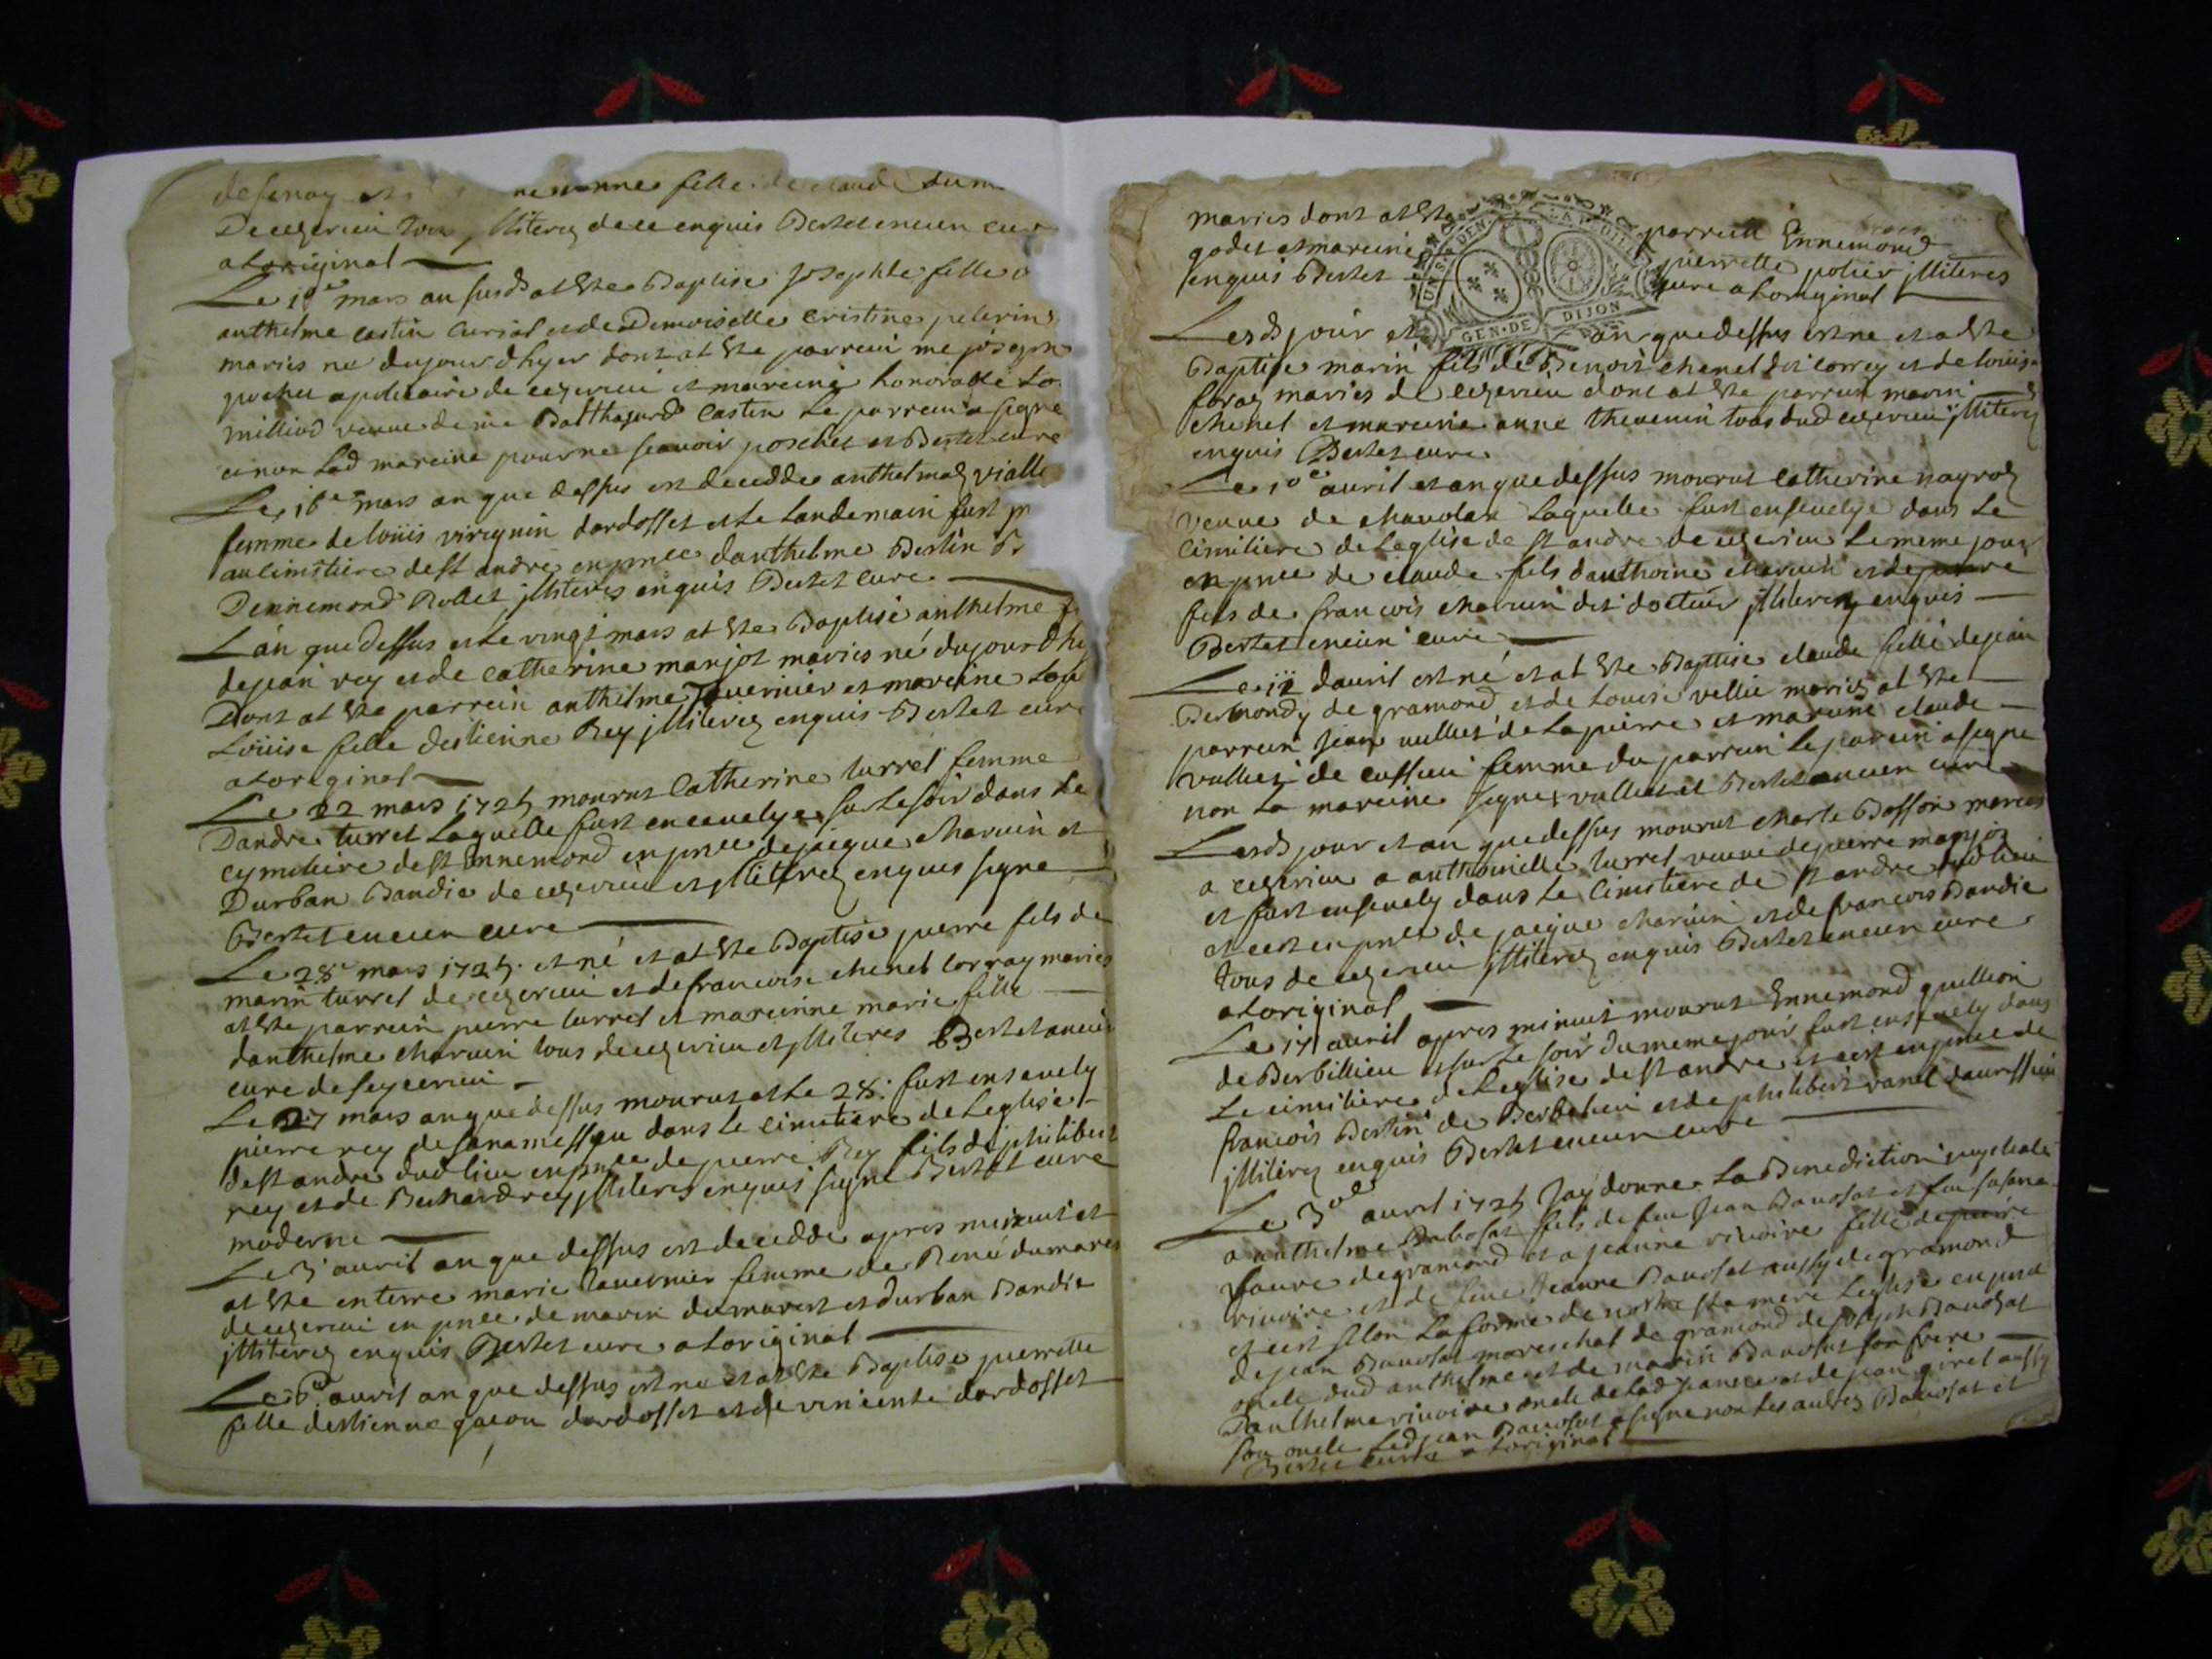 fille de claude
De ceyzerieu illiterez de ce enquis Bertet encien
a Loriginal
Le mars an susd at este Baptise Josephte fille
anthelme castin curial et de Demoiselle Cristine pelerin
maries ne du jour dhyer dont at este parrein me joseph
apoticaire de ceyzerieu et mareine honorable
milliod veuve de me Balthazard Castin Le parrein a signe
et non Lad mareine pour ne scavoir pochet et Bertet cure
Le 16e mars an que dessus est deceddee anthelmaz
femme de loüis virignin dardosset et le landemain fust
au cimstiere de st andre en pnce danthelme Bertin
Dennemond Rollet jlliteres enquis Bertet Cure
Lan que Dessus et le vingt mars at este Baptise anthelme
de jean rey et de Catherine marjot maries né du jour dhy
Dont at este parrein anthelme Tavernier et mareine
Loüise fille destienne Rey jlliterez enquis Bertet cure
a Loriginal
Le 22 mars 1725 mourut Catherine turrel femme
Dandre turrel Laquelle fust encevelye sur Le soir dans Le
cymitiere de st Ennemond en pnce de jacque charvin et
Durban Bandie de ceyzerieu et jlliterez enquis signe
Bertet encien cure
Le 28e mars 1725 est né et at este Baptisé pierre fils de
marin turrel de ceyzerieu et de francoise chenel corray maries
at este parrein pierre turrel et mareinne marie fille
danthelme charvin tous de ceyzerieu et jlliteres Bertet ancien
cure de seyzerieu
Le 27 mars an que dessus mourut et le 28: fust ensevely
pierre rey de dans le cimitiere de Leglise
de st andre dud lieu en pnce de pierre Rey fils de philibert
rey et de rey jlliteres enquis signe Bertet cure
moderne
Le 3 avril an que dessus est decedde apres minuit et
at este enterre marie Tavernier femme de René dumarest
de ceyzerieu en pnce de marin dumarest et durban Bandie
jlliterez enquis Bertet cure a Loriginal
Le 6e avril an que dessus est ne et at este Baptise pierrette
fille destienne dardosset et de vincente dardosset
maries dont at este parrein Ennemond
godet et mareine pierrette potier jlliteres
enquis Bertet cure a Loriginal
Lesd jour et an que dessus est ne et a este
Baptise marin fils de Benoit chenel dit correy et de loüise
maries de ceyzerieu dont at este parrein marin
chenel et mareine anne thevenin tous dud ceyzerieu jlliterez
enquis Bertet cure
Le 10e avril et an que dessus mourut Catherine
veuve de Laquelle fust ensevelye dans Le
Cimitiere de Leglise de st andre de ceyzerieu Le meme jour
en pnce de claude fils danthoine charvin et de pierre
fils de francois charvin dit docteur jlliterez enquis
Bertet encien cure
Le dauril est né et at este Baptise claude fille de jean
Dermondy de gramond et de Louise vellie maries at este
parrein Jean vulliet de Lapierre et mareine claude
vulliez de femme du parrein Le parrein a signe
non La mareine signes vulliet et Bertet ancien cure
Lesd jour et an que dessus mourut charle Bosson maries
a ceyzerieu a anthoinette turrel veuve de pierre manjot
et fust ensevely dans Le Cimstiere de st andre dud lieu
et ce en pnce de jacque charvin et de francois Bandie
tous de ceyzerieu jlliterez enquis Bertet encien cure
a Loriginal
Le 17 avril apres minuit mourut Ennemond guillion
de Berbillieu et sur le soir du meme jour fust ensevely dans
Le cimitiere de Leglise de st andre et ce en pnce de
francois Bertin de et de philibert vanel
jlliterez enquis Bertet encien cure
Le 30e avril 1725 Jay donne La Benediction nuptiale
a anthelme Bavosat fils de feu Jean Bavosat et feu susane
favre de gramond et a jeanne rivoire fille de pierre
rivoire et de feue Jeanne Bavosat aussy de gramond
et ce selon La forme de nostre ste mere Leglise en pnce
de jean Bavosat mareschal de gramond de Joseph Bavosat
oncle dud anthelme et de marin Bavosat son frere
Danthelme rivoire oncle de Lad Jeanne et de jean giret aussy
son oncle Led jean Bavosat a signe non les autres Bavosat et
Bertet cure a Loriginal
GEN·DE DIJON